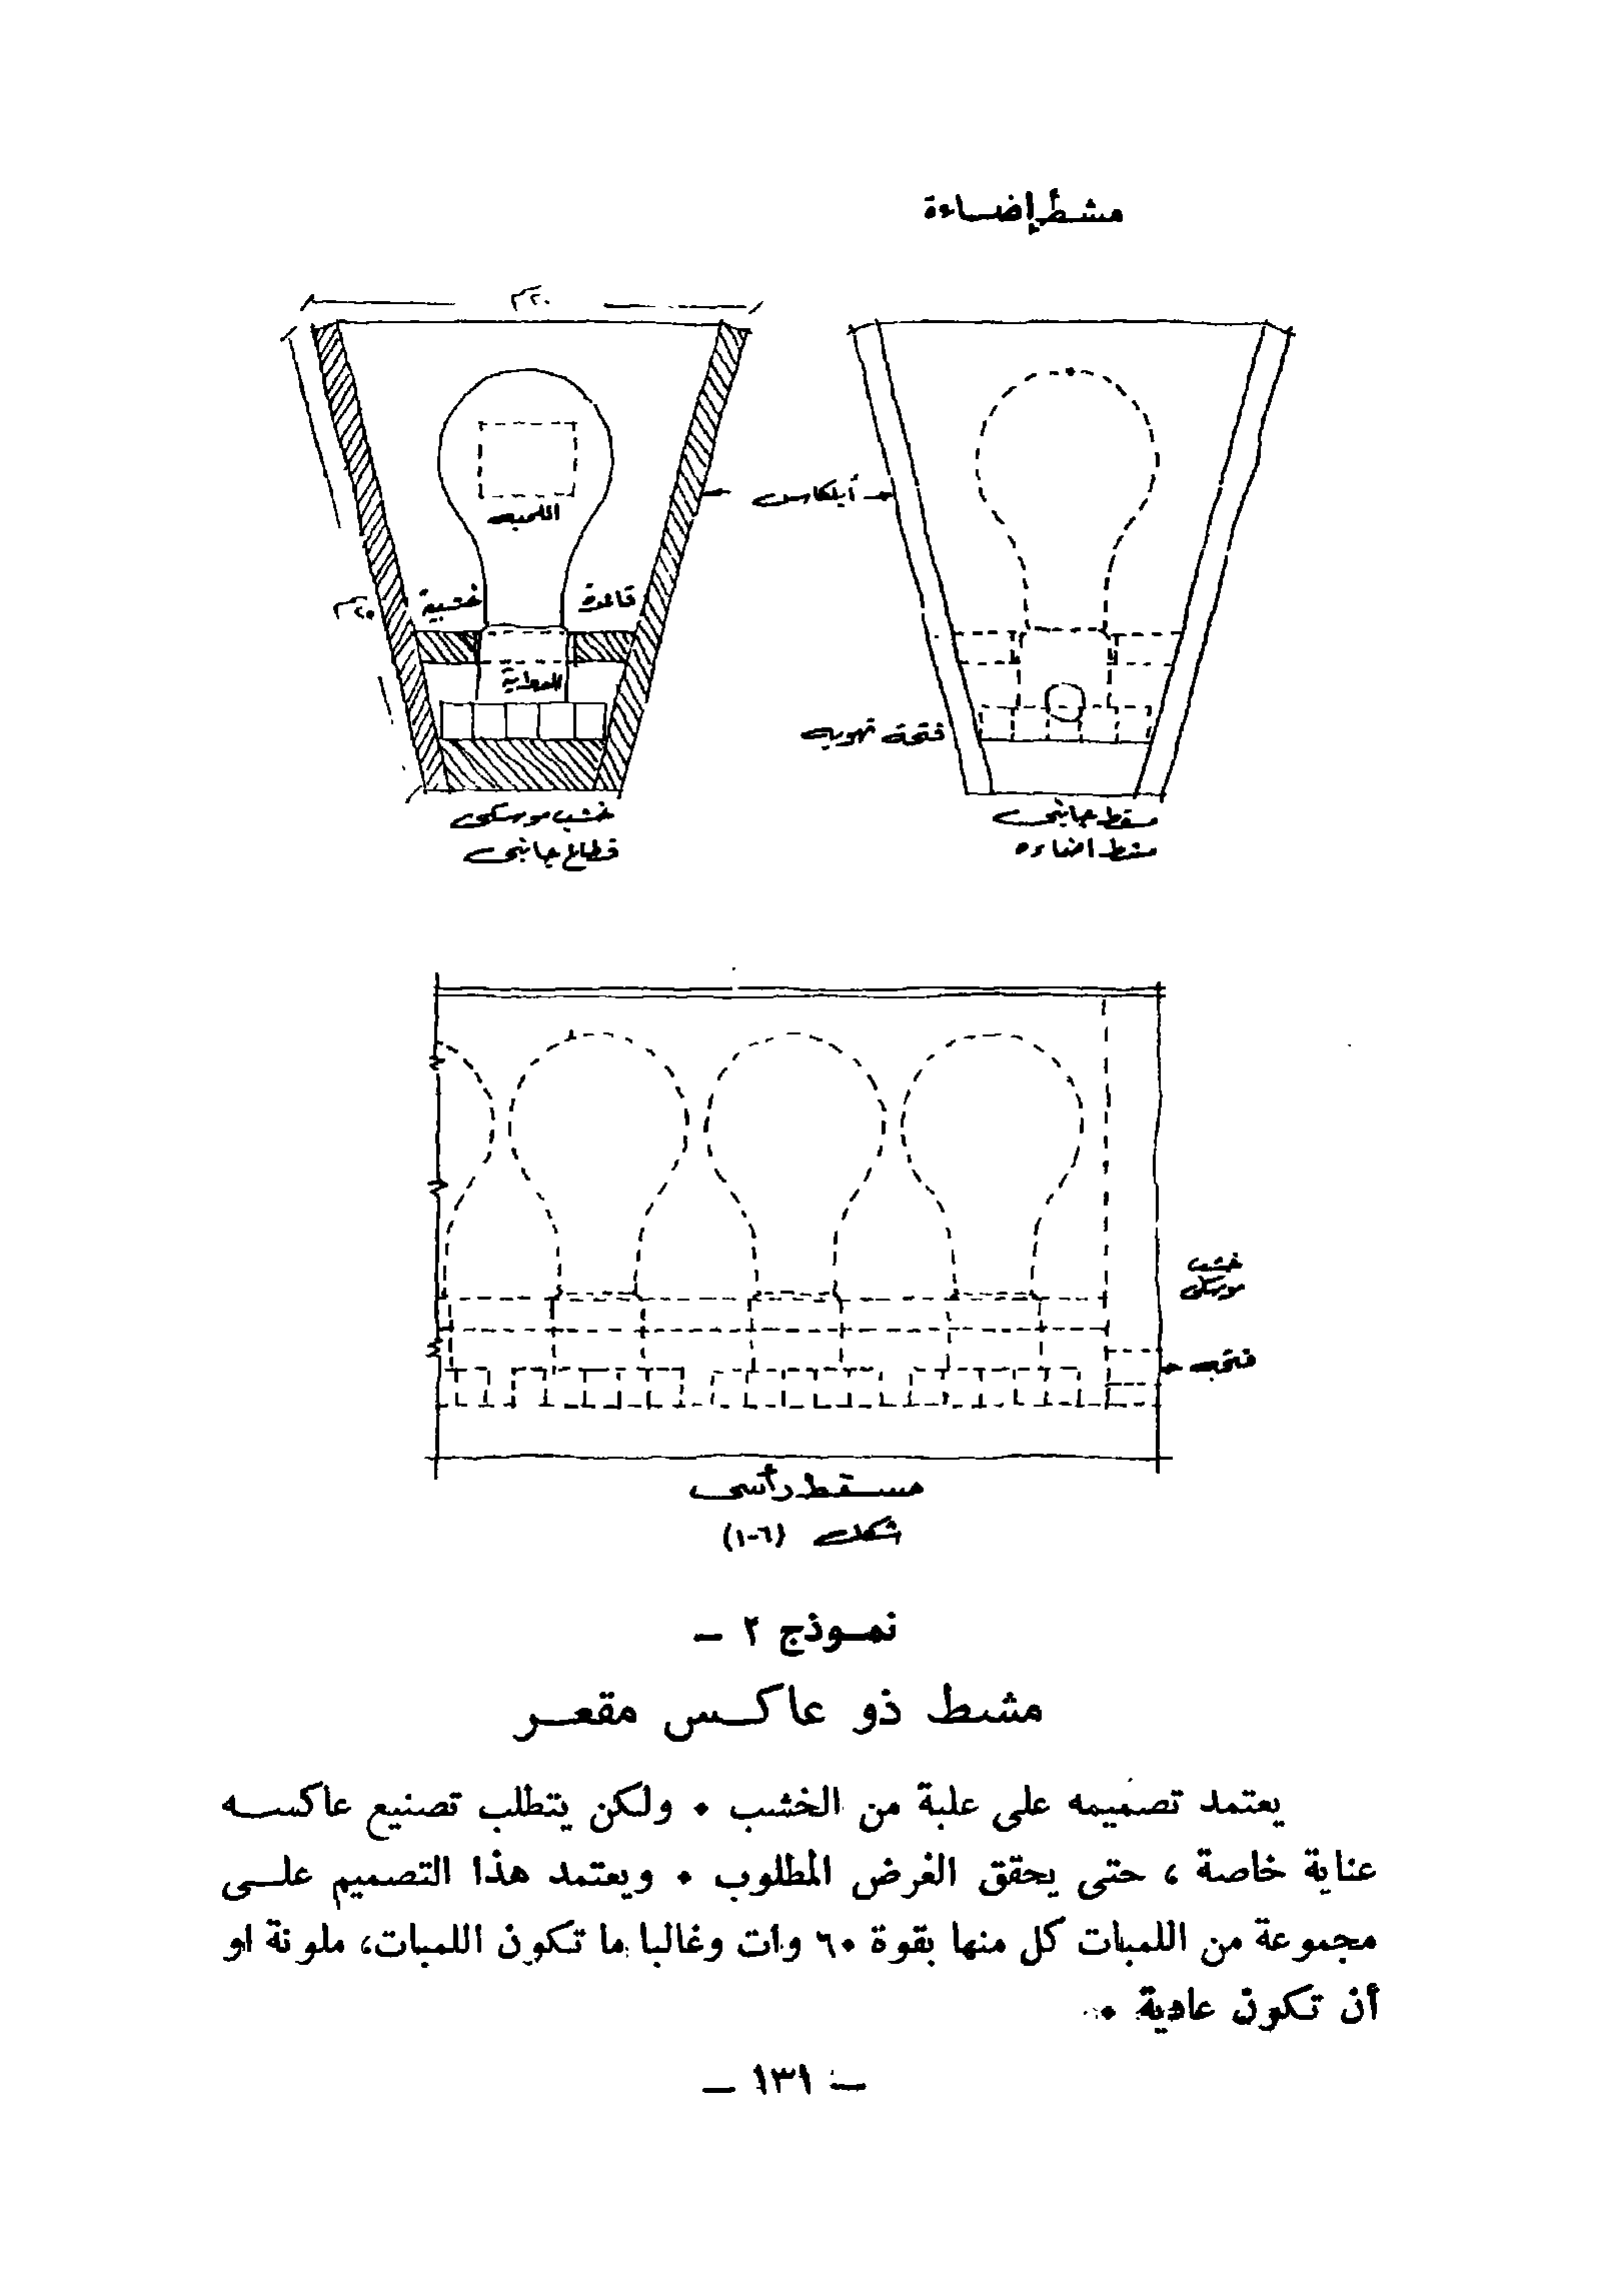 مشط إضاءة
٢٠سم
أبلكاس
اللمبة
قاعدة خشبية
٢٥سم
القطرية
فتحة تهويه
خشب موسكى
قطاع جانبى
مسقط جانبى
مشط اضاءه
خشب
موسكى
فتحه
مسقط رأسى
شكل (٦-١)
نموذج ٢ –
مشط ذو عاكس مقعر
يعتمد تصميمه على علبة من الخشب ٠ ولكن يتطلب تصنيع عاكسه
عناية خاصة ، حتى يحقق الغرض المطلوب ٠ ويعتمد هذا التصميم على
مجموعة من اللمبات كل منها بقوة ٦٠ وات وغالبا ما تكون اللمبات، ملونة او
أن تكون عادية ٠
– ١٣١ –